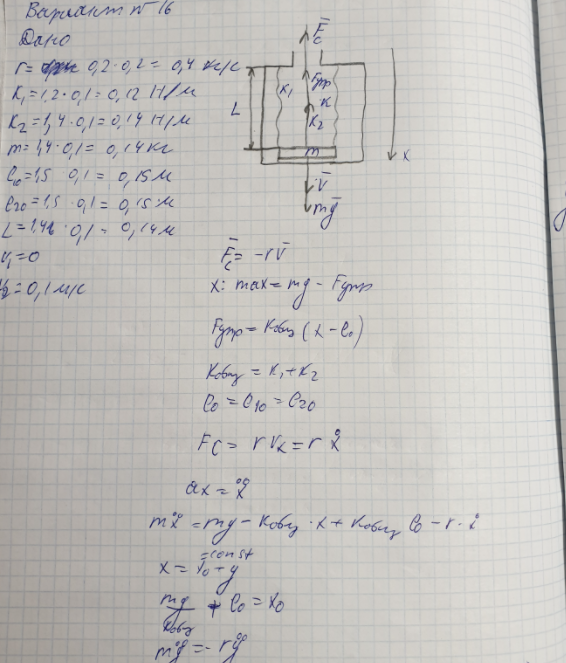 Вариант №16
Дано
r = 0,2·0,2 = 0,4 кг/с
K₁ = 1,2·0,1 = 0,12 Н/м
K₂ = 1,4·0,1 = 0,14 Н/м
m = 1,4·0,1 = 0,14 кг
l₁₀ = 1,5 0,1 = 0,15 м
l₂₀ = 1,5 · 0,1 = 0,15 м
L = 1,4 · 0,1 = 0,14 м
v₁ = 0
v₂ = 0,1 м/с
F̄c
Fупр
K₁
K
K₂
L
m
V̄
mḡ
x
F̄c = -rV̄
x: max = mg - Fупр
Fупр = Kобщ (x - l₀)
Kобщ = K₁ + K₂
l₀ = l₁₀ = l₂₀
Fc = rVx = rẋ
ax = ẍ
mẍ = mg - Kобщ · x + Kобщ l₀ - r · ẋ
= const
x = x₀ + y
mg/Kобщ + l₀ = x₀
mÿ = -rẏ